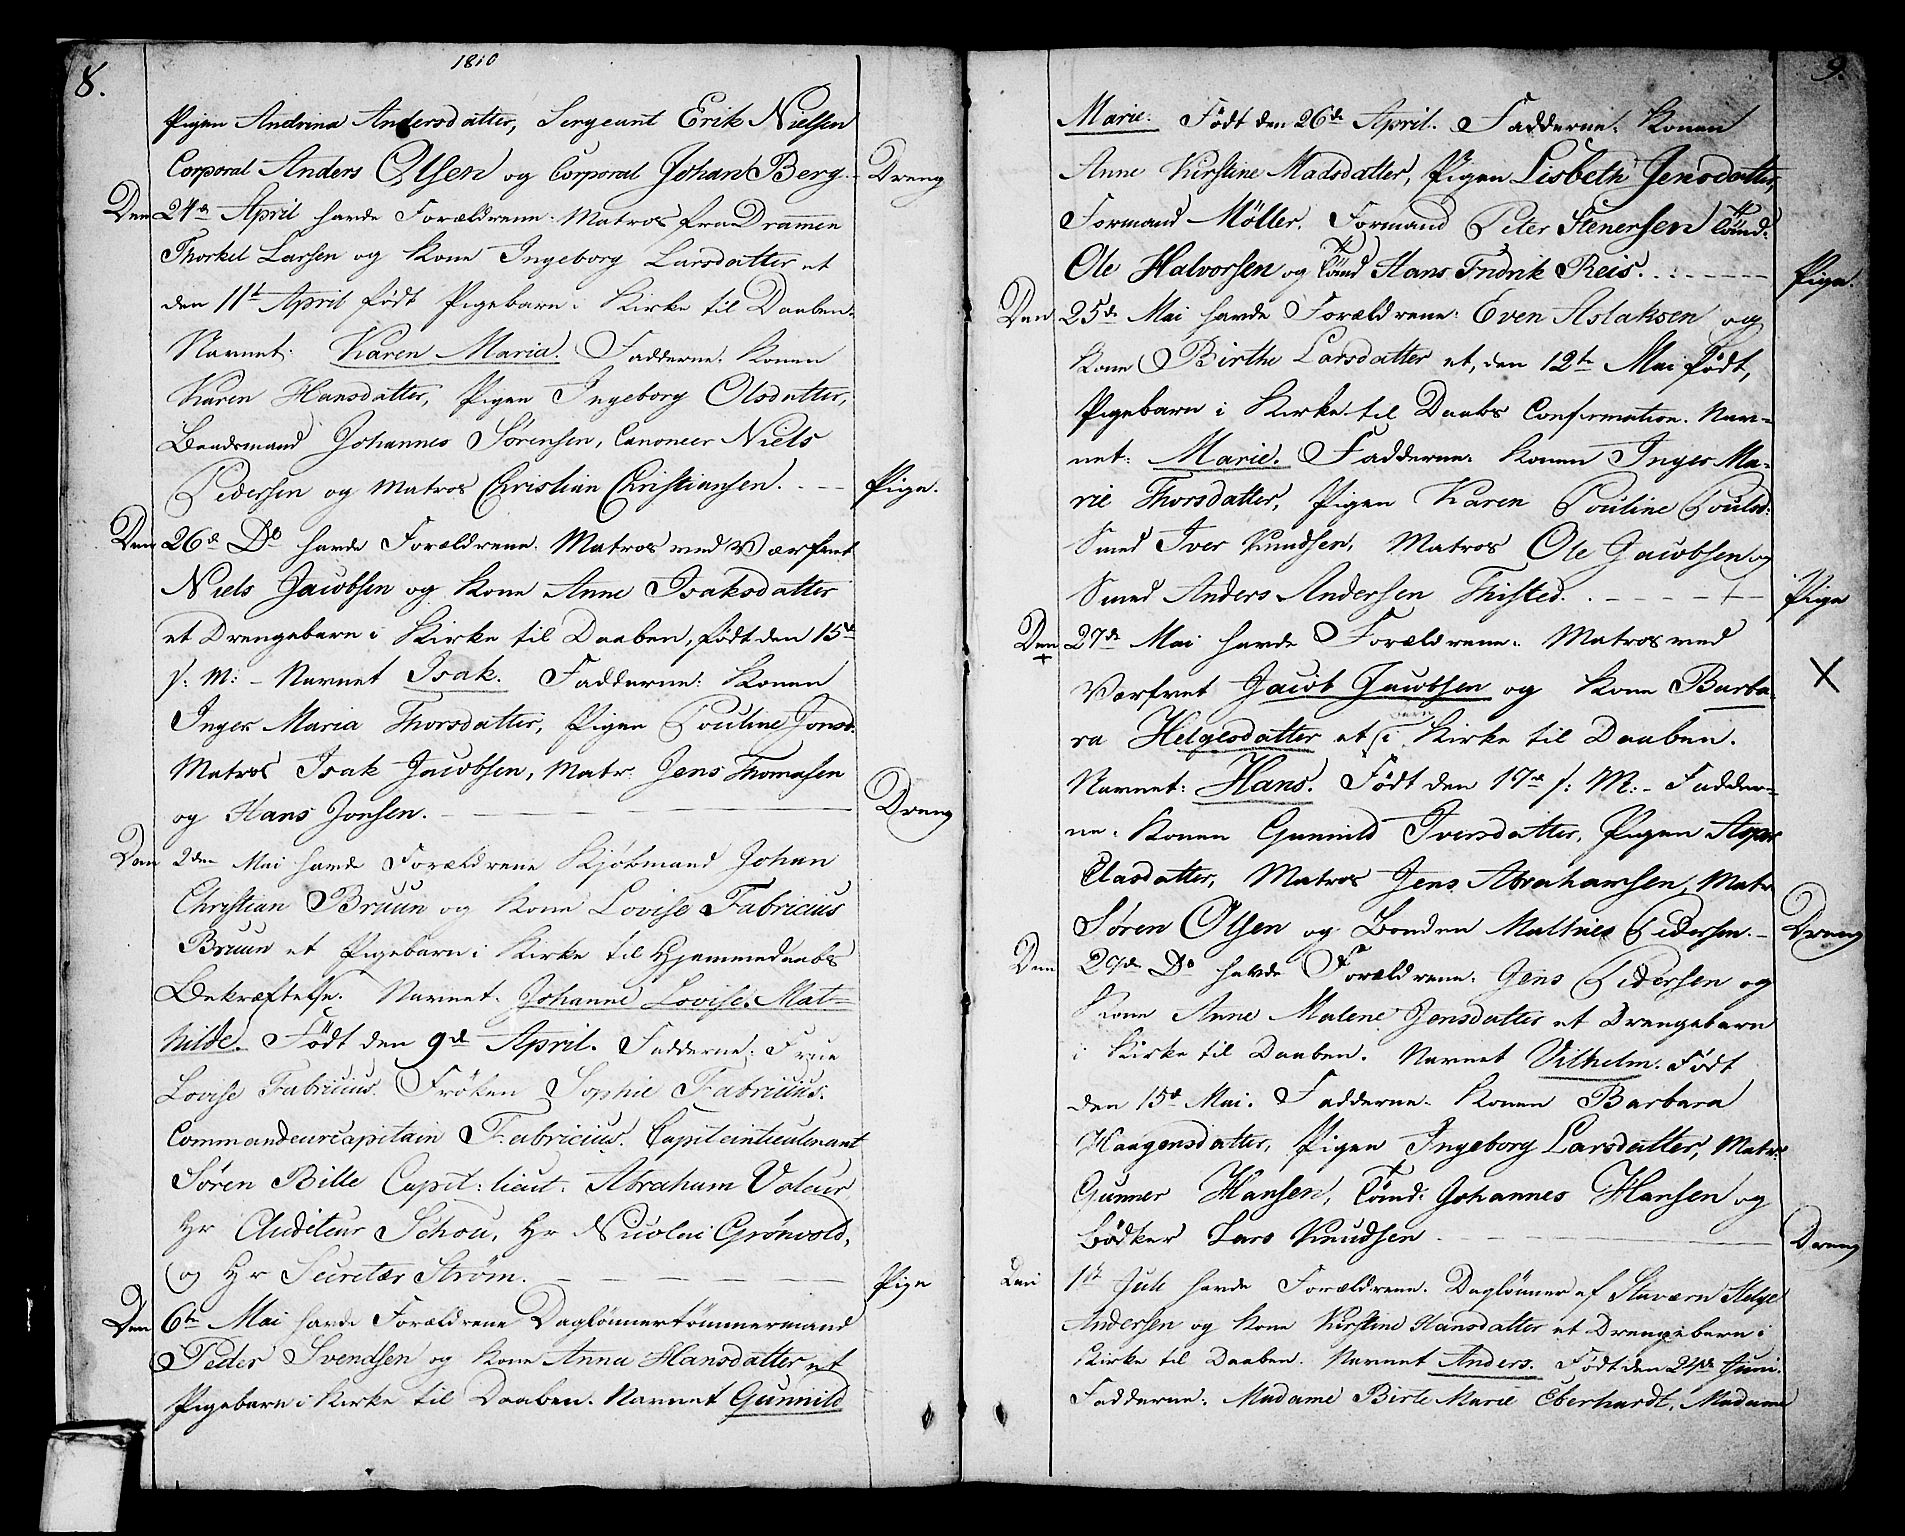 8.
1810
Pigen Andrina Andersdatter, Sergeant Erik Nielsen
Corporal Anders Olsen og Corporal Johan Berg. - Dreng
Den 24de April havde Forældrene: Matros fra Drammen
Thorkel Larsen og Kone Ingeborg Larsdatter et
den 11te April født Pigebarn i Kirke til Daaben.
Navnet: Karen Maria. Fadderne: Konen
Karen Hansdatter, Pigen Ingeborg Olsdatter,
Baadsmand Johannes Sørensen, Canoneer Niels
Pedersen og Matros Christian Christiansen. - - Pige.
Den 26de Do havde Forældrene. Matros ved Værfvet
Niels Jacobsen og Kone Anne Isaksdatter
et Drengebarn i Kirke til Daaben, født den 15de
s: M: - Navnet Isak. Fadderne: Konen
Inger Maria Thorsdatter, Pigen Pouline Jonsd.
Matros Isak Jacobsen, Matr. Jens Thomasen
og Hans Jonsen. - Dreng
Den 2den Mai havde Forældrene Kjøbmand Johan
Christian Bruun og Kone Lovise Fabricius
Bruun et Pigebarn i Kirke til Hjemmedaabs
Bekræftelse. Navnet. Johanne Lovise Mat=
hilde. Født den 9de April. Fadderne: Frue
Lovise Fabricius. Frøken Sophie Fabricius.
Commandeurcapitain Fabricius. Capitainlieutenant
Søren Bille Capit: lieut. Abraham Valeur
Hr Auditeur Schou, Hr Nicolai Grønvold,
og Hr Secretær Strøm. - Pige
Den 6te Mai havde Forældrene Dagløннertømmermand
Peder Svendsen og Kone Anna Hansdatter et
Pigebarn i Kirke til Daaben. Navnet Gunnild
9.
Marie. Født den 26de April. Fadderne: Konen
Anne Kirstine Madsdatter, Pigen Lisbeth Jensdatter,
Formand Møller. Formand Peter Stenersen Tømd:
Ole Halvorsen og Tømd Hans Fridrik Reis. - Pige.
Den 25de Mai havde Forældrene: Even Aslaksen og
Kone Birthe Larsdatter et, den 12te Mai født,
Pigebarn i Kirke til Daabs Confirmation. Nav=
net: Marie. Fadderne: Konen Inger Ma=
rie Thorsdatter, Pigen Karen Pouline Poulsd:
Smed Iver Knudsen, Matros Ole Jacobsen og
Smed Anders Andersen Thisted. - Pige
Den 27de Mai havde Forældrene: Matros ved
Værfvet Jacob Jacobsen og Kone Barba= X
ra Helgesdatter et barn i Kirke til Daaben.
Navnet: Hans. Født den 17de s: M: - Fadder=
ne. Konen Gunnild Iversdatter, Pigen
Elasdatter, Matros Jens Abrahamsen, Matr
Søren Olsen og Bonden Mathies Pedersen. - Dreng
Den 29de Do havde Forældrene: Jens Pedersen og
Kone Anne Malene Jensdatter et Drengebarn
i Kirke til Daaben. Navnet Vilhelm. Født
den 15de Mai. Fadderne. Konen Barbara
Haagensdatter, Pigen Ingeborg Larsdatter, Matr:
Gunner Hansen, Tømd: Johannes Hansen og
Bødker Lars Knudsen - Dreng
Den 1ste Juli havde Forældrene. Dagløнner af Staværn Helge
Andersen og Kone Kirstine Hansdatter et Drengebarn i
Kirke til Daaben. Navnet Anders. Født den 24de Juni.
Fadderne. Madame Birte Marie Eberhardt, Madame